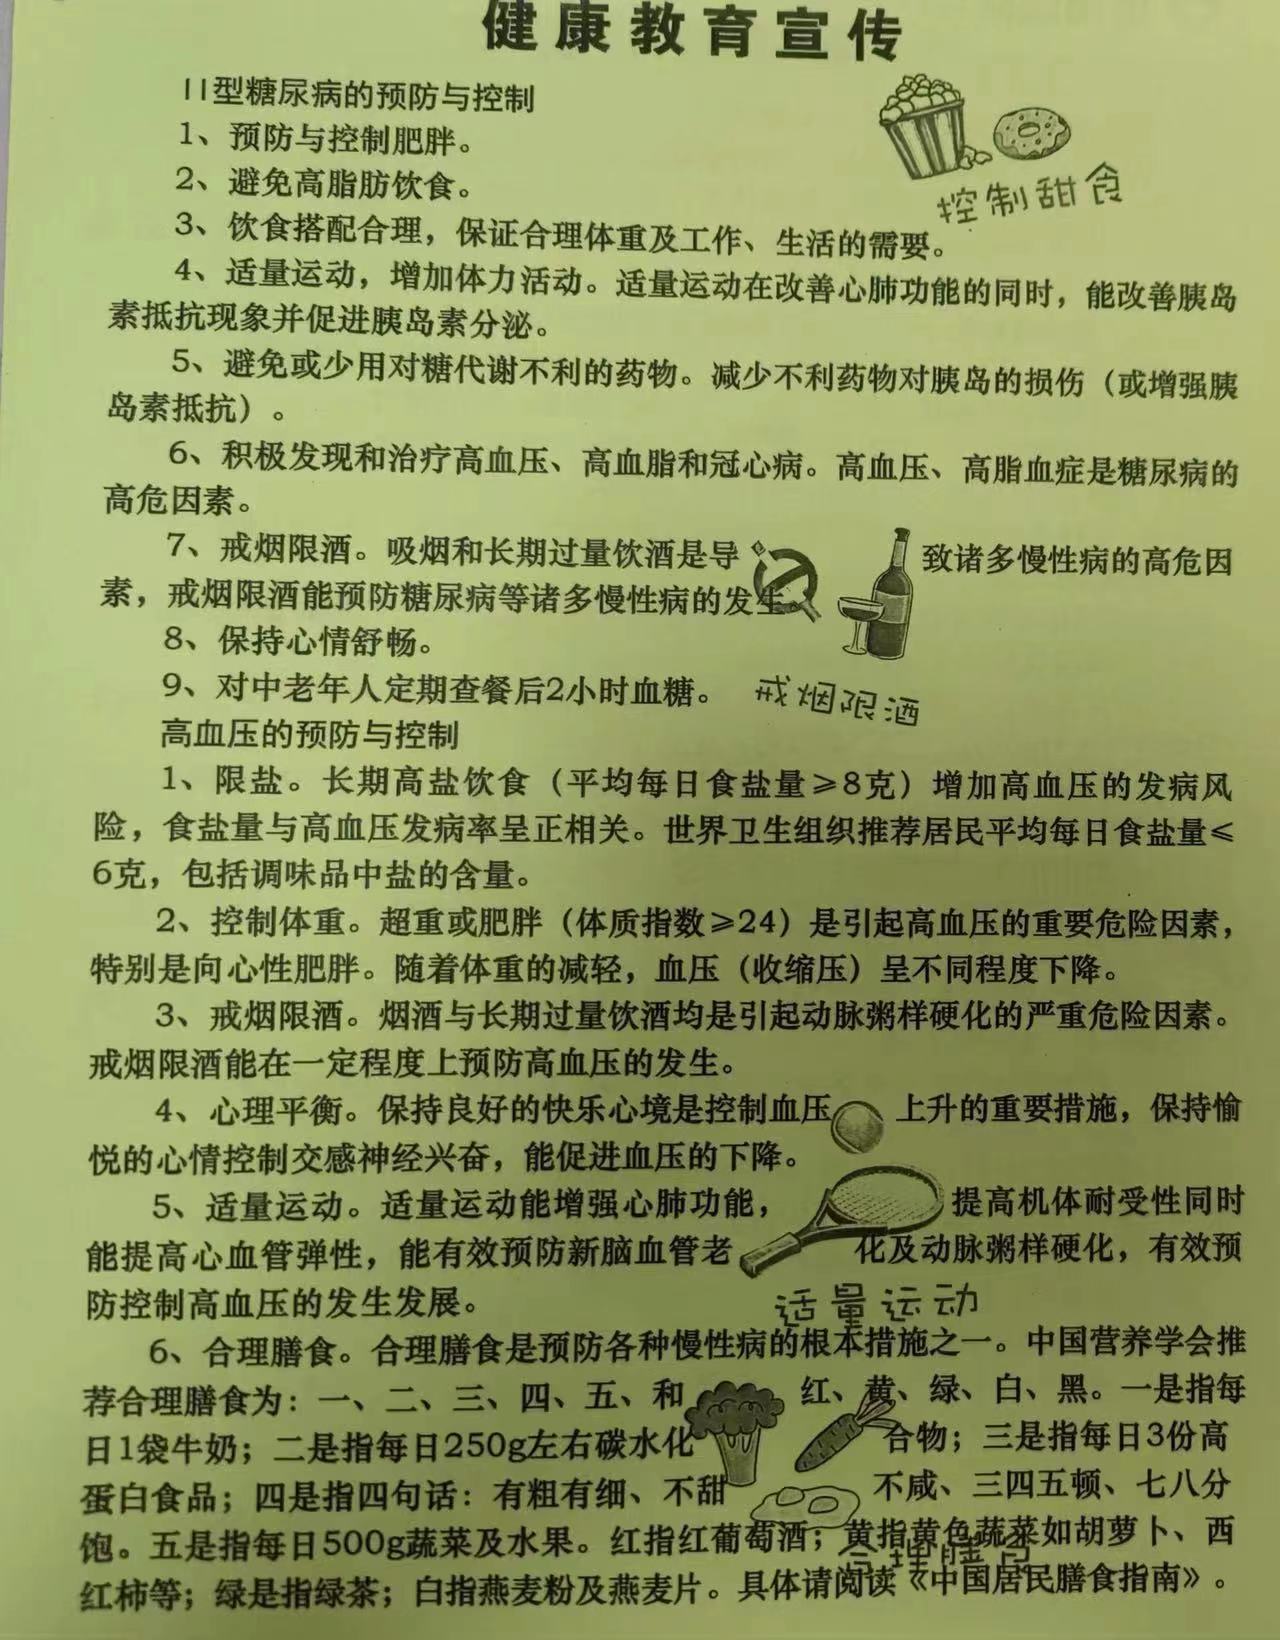 健康教育宣传
II型糖尿病的预防与控制
1、预防与控制肥胖。
2、避免高脂肪饮食。
控制甜食
3、饮食搭配合理，保证合理体重及工作、生活的需要。
4、适量运动，增加体力活动。适量运动在改善心肺功能的同时，能改善胰岛
素抵抗现象并促进胰岛素分泌。
5、避免或少用对糖代谢不利的药物。减少不利药物对胰岛的损伤（或增强胰
岛素抵抗）。
6、积极发现和治疗高血压、高血脂和冠心病。高血压、高脂血症是糖尿病的
高危因素。
7、戒烟限酒。吸烟和长期过量饮酒是导致诸多慢性病的高危因
素，戒烟限酒能预防糖尿病等诸多慢性病的发生
8、保持心情舒畅。
9、对中老年人定期查餐后2小时血糖。
戒烟限酒
高血压的预防与控制
1、限盐。长期高盐饮食（平均每日食盐量≥8克）增加高血压的发病风
险，食盐量与高血压发病率呈正相关。世界卫生组织推荐居民平均每日食盐量≤
6克，包括调味品中盐的含量。
2、控制体重。超重或肥胖（体质指数≥24）是引起高血压的重要危险因素，
特别是向心性肥胖。随着体重的减轻，血压（收缩压）呈不同程度下降。
3、戒烟限酒。烟酒与长期过量饮酒均是引起动脉粥样硬化的严重危险因素。
戒烟限酒能在一定程度上预防高血压的发生。
4、心理平衡。保持良好的快乐心境是控制血压上升的重要措施，保持愉
悦的心情控制交感神经兴奋，能促进血压的下降。
5、适量运动。适量运动能增强心肺功能，提高机体耐受性同时
能提高心血管弹性，能有效预防新脑血管老化及动脉粥样硬化，有效预
防控制高血压的发生发展。
适量运动
6、合理膳食。合理膳食是预防各种慢性病的根本措施之一。中国营养学会推
荐合理膳食为：一、二、三、四、五、和红、黄、绿、白、黑。一是指每
日1袋牛奶；二是指每日250g左右碳水化合物；三是指每日3份高
蛋白食品；四是指四句话：有粗有细、不甜不咸、三四五顿、七八分
饱。五是指每日500g蔬菜及水果。红指红葡萄酒；黄指黄色蔬菜如胡萝卜、西
合理膳食
红柿等；绿是指绿茶；白指燕麦粉及燕麦片。具体请阅读《中国居民膳食指南》。